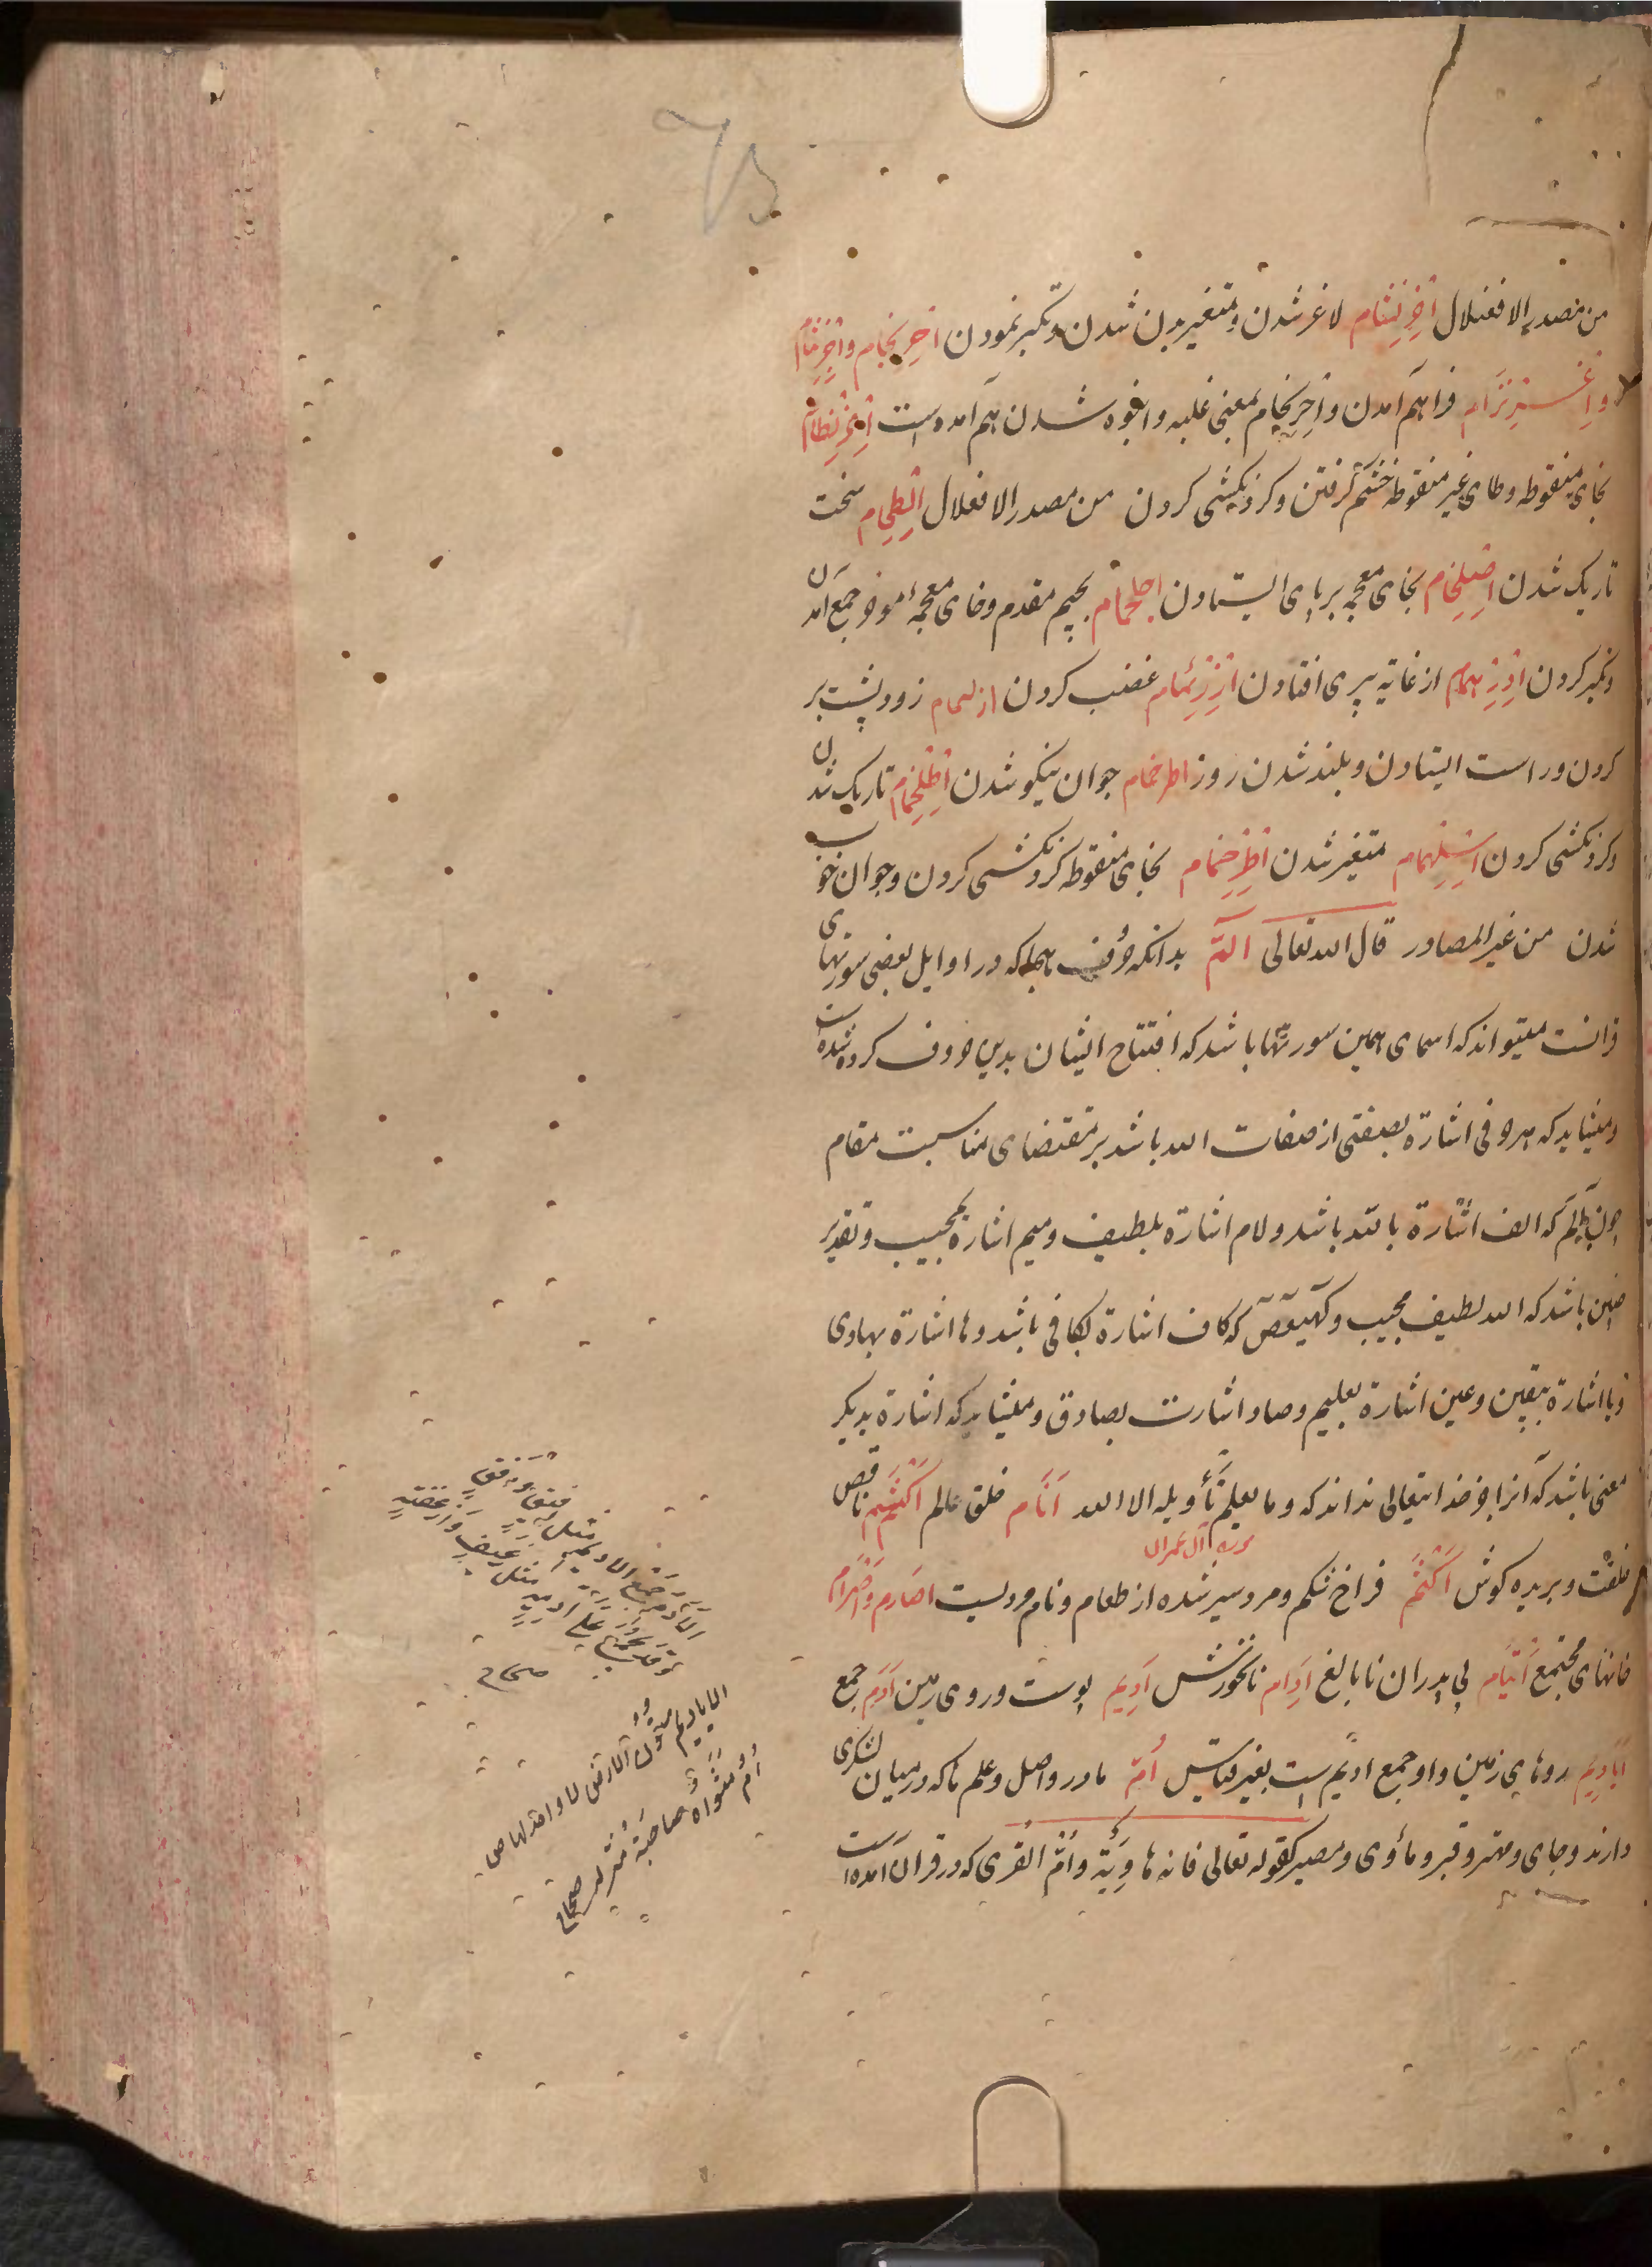 من مصدر الافعنلال اخرنشام لاغر شدن و متغیر بدن شدن و تکبر نمودن احرنجام و اخرنثام
واعرنزام فراهم آمدن واحرنجام بمعنی غلبه و انبوه شدن هم آمده است اخرنطام
بخای منقوطه وطای غیر منقوطه خشم گرفتن و کردنکشی کردن من مصدر الافعلال سخت
تاریک شدن اصلخمام بخای معجمه بر پای ایستادن اجلخمام بجیم مقدم وخای معجمه موخر جمع آمدن
وتکبر کردن ادرهمام از غایة پیری افتادن غضب کردن ازلهمام زود پشت بر
کردن و راست ایستادن و بلند شدن روز اطرخمام جوان نیکو شدن اطلخمام تاریک شدن
وکردنکشی کردن اسلهمام متغیر شدن اطرخمام بخای منقوطه کردنکشی کردن وجوان خوب
شدن من غیر المصادر قال الله تعالی الم بدانکه حروف تهجا که در اوایل بعضی سورتهای
قرانست میتواند که اسمای همین سورتها باشد که افتتاح ایشان بدین حروف کرده شده است
ومیشاید که هر حرفی اشارة بصفتی از صفات الله باشد بر مقتضای مناسبت مقام
چون الم که الف اشارة بالله باشد ولام اشارة بلطیف ومیم اشارة بمجیب وتقدیر
چنین باشد که الله لطیف مجیب وکهیعص که کاف اشارة بکافی باشد وها اشارة بهادی
ویا اشارة بیقین وعین اشارة بعلیم وصاد اشارت بصادق ومیشاید که اشارة بدیکر
معنی باشد که آنرا جز خدایتعالی نداند که وما یعلم تأویله الا الله سوره آل عمران انام خلق عالم اکشم ناقص
خلقت و بریده کوش اکثم فراخ شکم و مرد سیر شده از طعام و نام مردیست اصارم واصرام
خانهای مجتمع ایتام بی پدران نابالغ ادام نانخورش ادیم پوست و روی زمین ادم جمع
ایادیم روهای زمین واو جمع ادیم است بغیر قیاس ام مادر و اصل و علم که در میان لشکری
دارند و جای و مهتر و قبر و مأوی و مصیر کقوله تعالی فامه هاویة وام القری که در قران آمده است
الادم جمع الادیم مثل افیق وافق
وقد یجمع علی ادمة مثل رغیف وارغفة
صحاح
الایادیم متون الارض لا واحد لها ص
ام مثواه صاحبة منزله صحاح